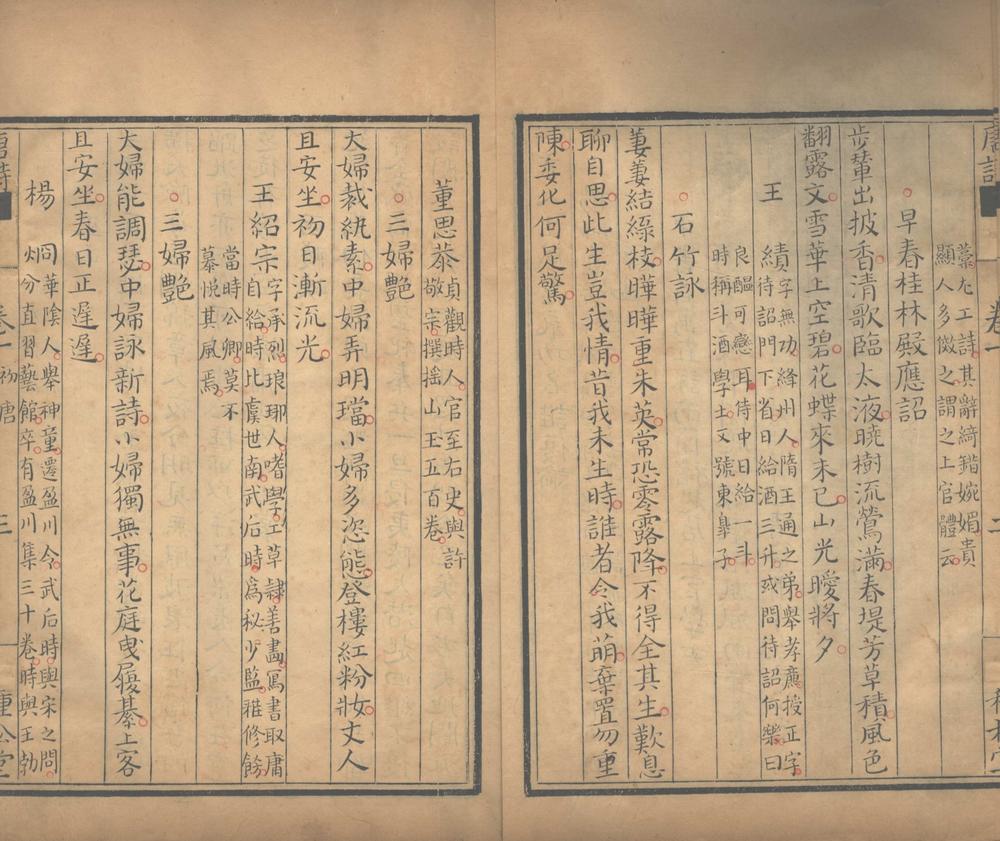 藁尤工詩其辭綺錯婉媚貴
顯人多傚之謂之上官體云
早春桂林殿應詔
步輦出披香清歌臨太液曉樹流鶯滿春堤芳草積風色
翻露文雪華上空碧花蝶來未已山光曖將夕
王績字無功絳州人隋王通之弟舉孝廉授正字
待詔門下省日給酒三升或問待詔何樂曰
良醞可戀耳侍中日給一斗
時稱斗酒學士又號東皋子
石竹詠
萋萋結綠枝曄曄重朱英常恐零露降不得全其生歎息
聊自思此生豈我情昔我未生時誰者令我萌棄置勿重
陳委化何足驚
董思恭貞觀時人官至右史與許
敬宗撰搖山玉五百卷
三婦艷
大婦裁紈素中婦弄明璫小婦多恣態登樓紅粉妝丈人
且安坐初日漸流光
王紹宗字承烈琅琊人嗜學工草隸善畫寫書取庸
自給時比虞世南武后時為秘少監雅修飾
當時公卿莫不
慕悅其風焉
三婦艷
大婦能調瑟中婦詠新詩小婦獨無事花庭曳履綦上客
且安坐春日正遲遲
楊炯華陰人舉神童遷盈川令武后時與宋之問
分直習藝館卒有盈川集三十卷時與王勃
卷一 初唐
三